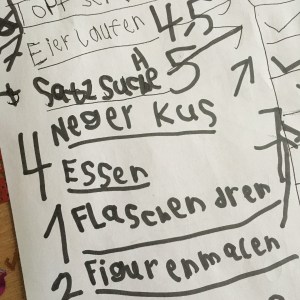 Topf
7 Eierlaufen 4,5
Satzsuche 5
Neger Kus
4 Essen
1 Flaschendren
2 Figurenmalen